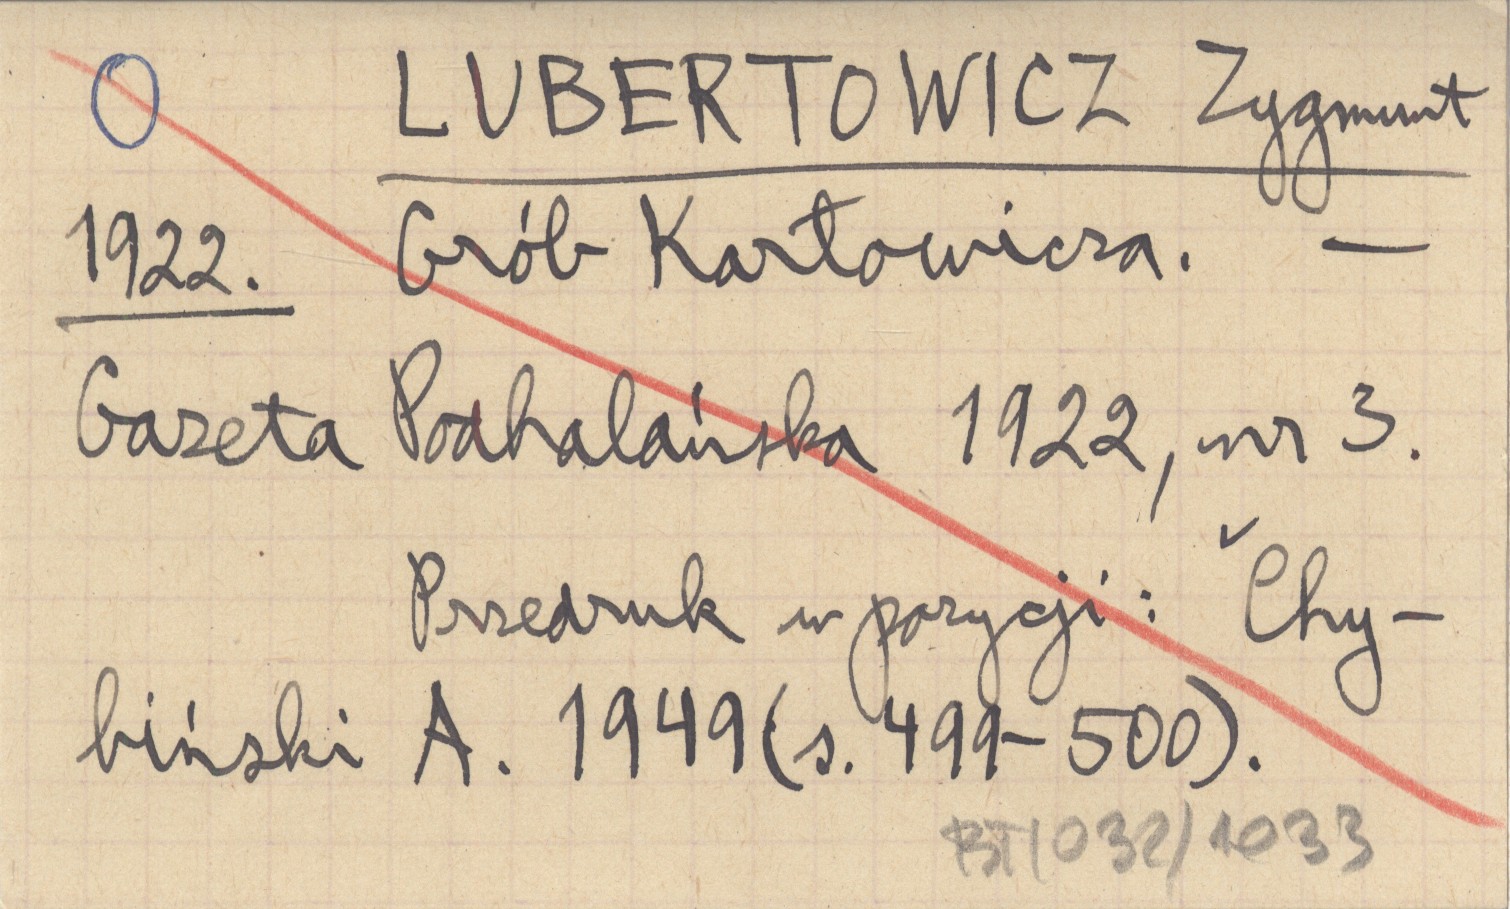 LUBERTOWICZ Zygmunt
1922. Grób Karłowicza. —
Gazeta Podhalańska 1922, nr 3.
Przedruk w pozycji: Chy-
biński A. 1949 (s. 499-500).
BT/032/1033